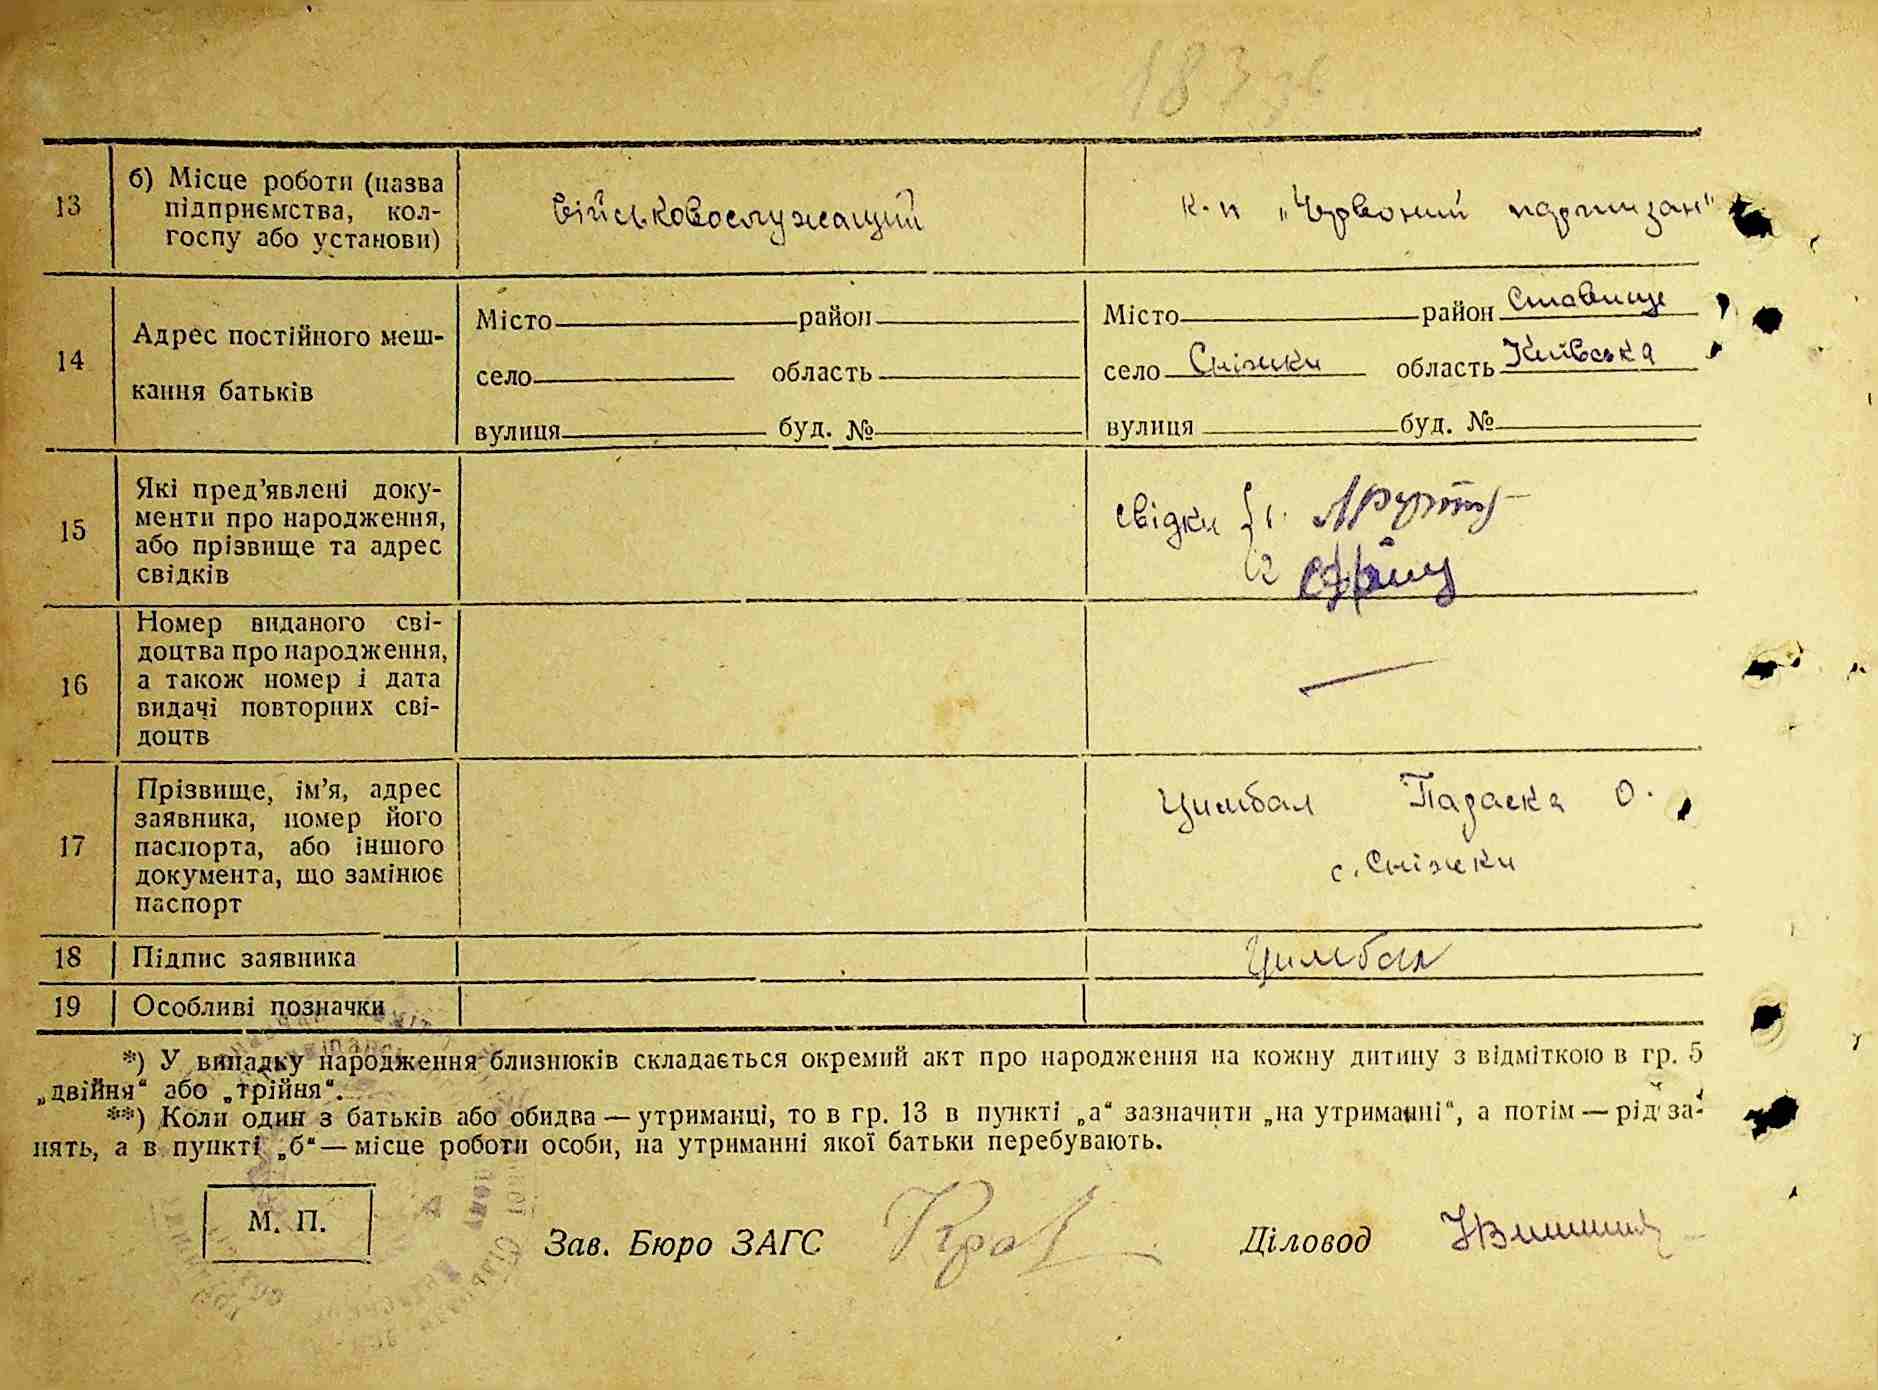 183 зв
13
б) Місце роботи (назва
підприємства, кол-
госпу або установи)
військовослужащий
к-п „Червоний партизан"
14
Адрес постійного меш-
кання батьків
Місто район
село область
вулиця буд. №
Місто район Ставище
село Сніжки область Київська
вулиця буд. №
15
Які пред’явлені доку-
менти про народження,
або прізвище та адрес
свідків
свідки 1.
2
16
Номер виданого сві-
доцтва про народження,
а також номер і дата
видачі повторних сві-
доцтв
17
Прізвище, ім’я, адрес
заявника, номер його
паспорта, або іншого
документа, що замінює
паспорт
Цимбал Параска О.
с. Сніжки
18
Підпис заявника
Цимбал
19
Особливі позначки
*) У випадку народження близнюків складається окремий акт про народження на кожну дитину з відміткою в гр. 5
„двійня“ або „трійня“.
**) Коли один з батьків або обидва — утриманці, то в гр. 13 в пункті „а“ зазначити „на утриманні“, а потім — рід за-
нять, а в пункті „б“ — місце роботи особи, на утриманні якої батьки перебувають.
М. П.
Зав. Бюро ЗАГС
Діловод